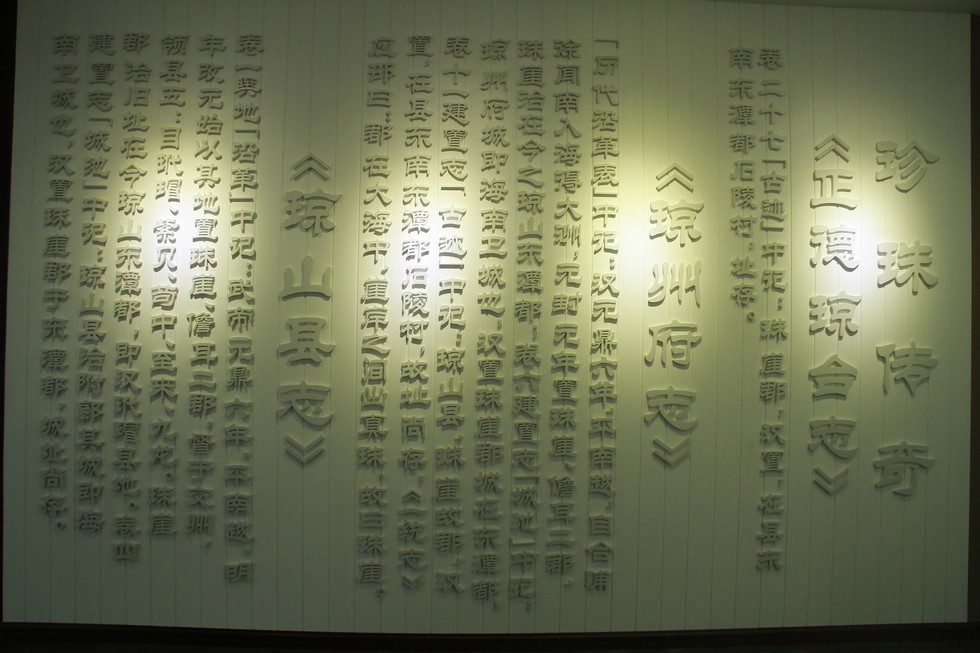 珍珠传奇
《正德琼台志》
卷二十七「古迹」中记：珠崖郡，汉置，在县东
南东潭都石陵村，址存。
《琼州府志》
「历代沿革表」中记：汉元鼎六年，平南越，自合浦
徐闻南入海得大洲，元封元年置珠崖、儋耳二郡，
珠崖治在今之琼山东潭都；卷六建置志「城池」中记：
琼州府城即海南卫城也，汉置珠崖郡城在东潭都，
卷十一建置志「古迹」中记：琼山县，珠崖故郡，汉
置，在县东南东潭都石陵村，故址尚存，《一统志》
应邵曰：郡在大海中，崖岸之间出真珠，故曰珠崖。
《琼山县志》
卷一舆地「沿革」中记：武帝元鼎六年，平南越，明
年改元始以其地置珠崖、儋耳二郡，督于交州，
领县五：曰玳瑁、紫贝、苟中、至来、九龙，珠崖
郡治旧址在今琼山东潭都，即汉玳瑁县地，卷四
建置志「城池」中记：琼山县治附郭其城即海
南卫城也，汉置珠崖郡于东潭都，城北尚存。